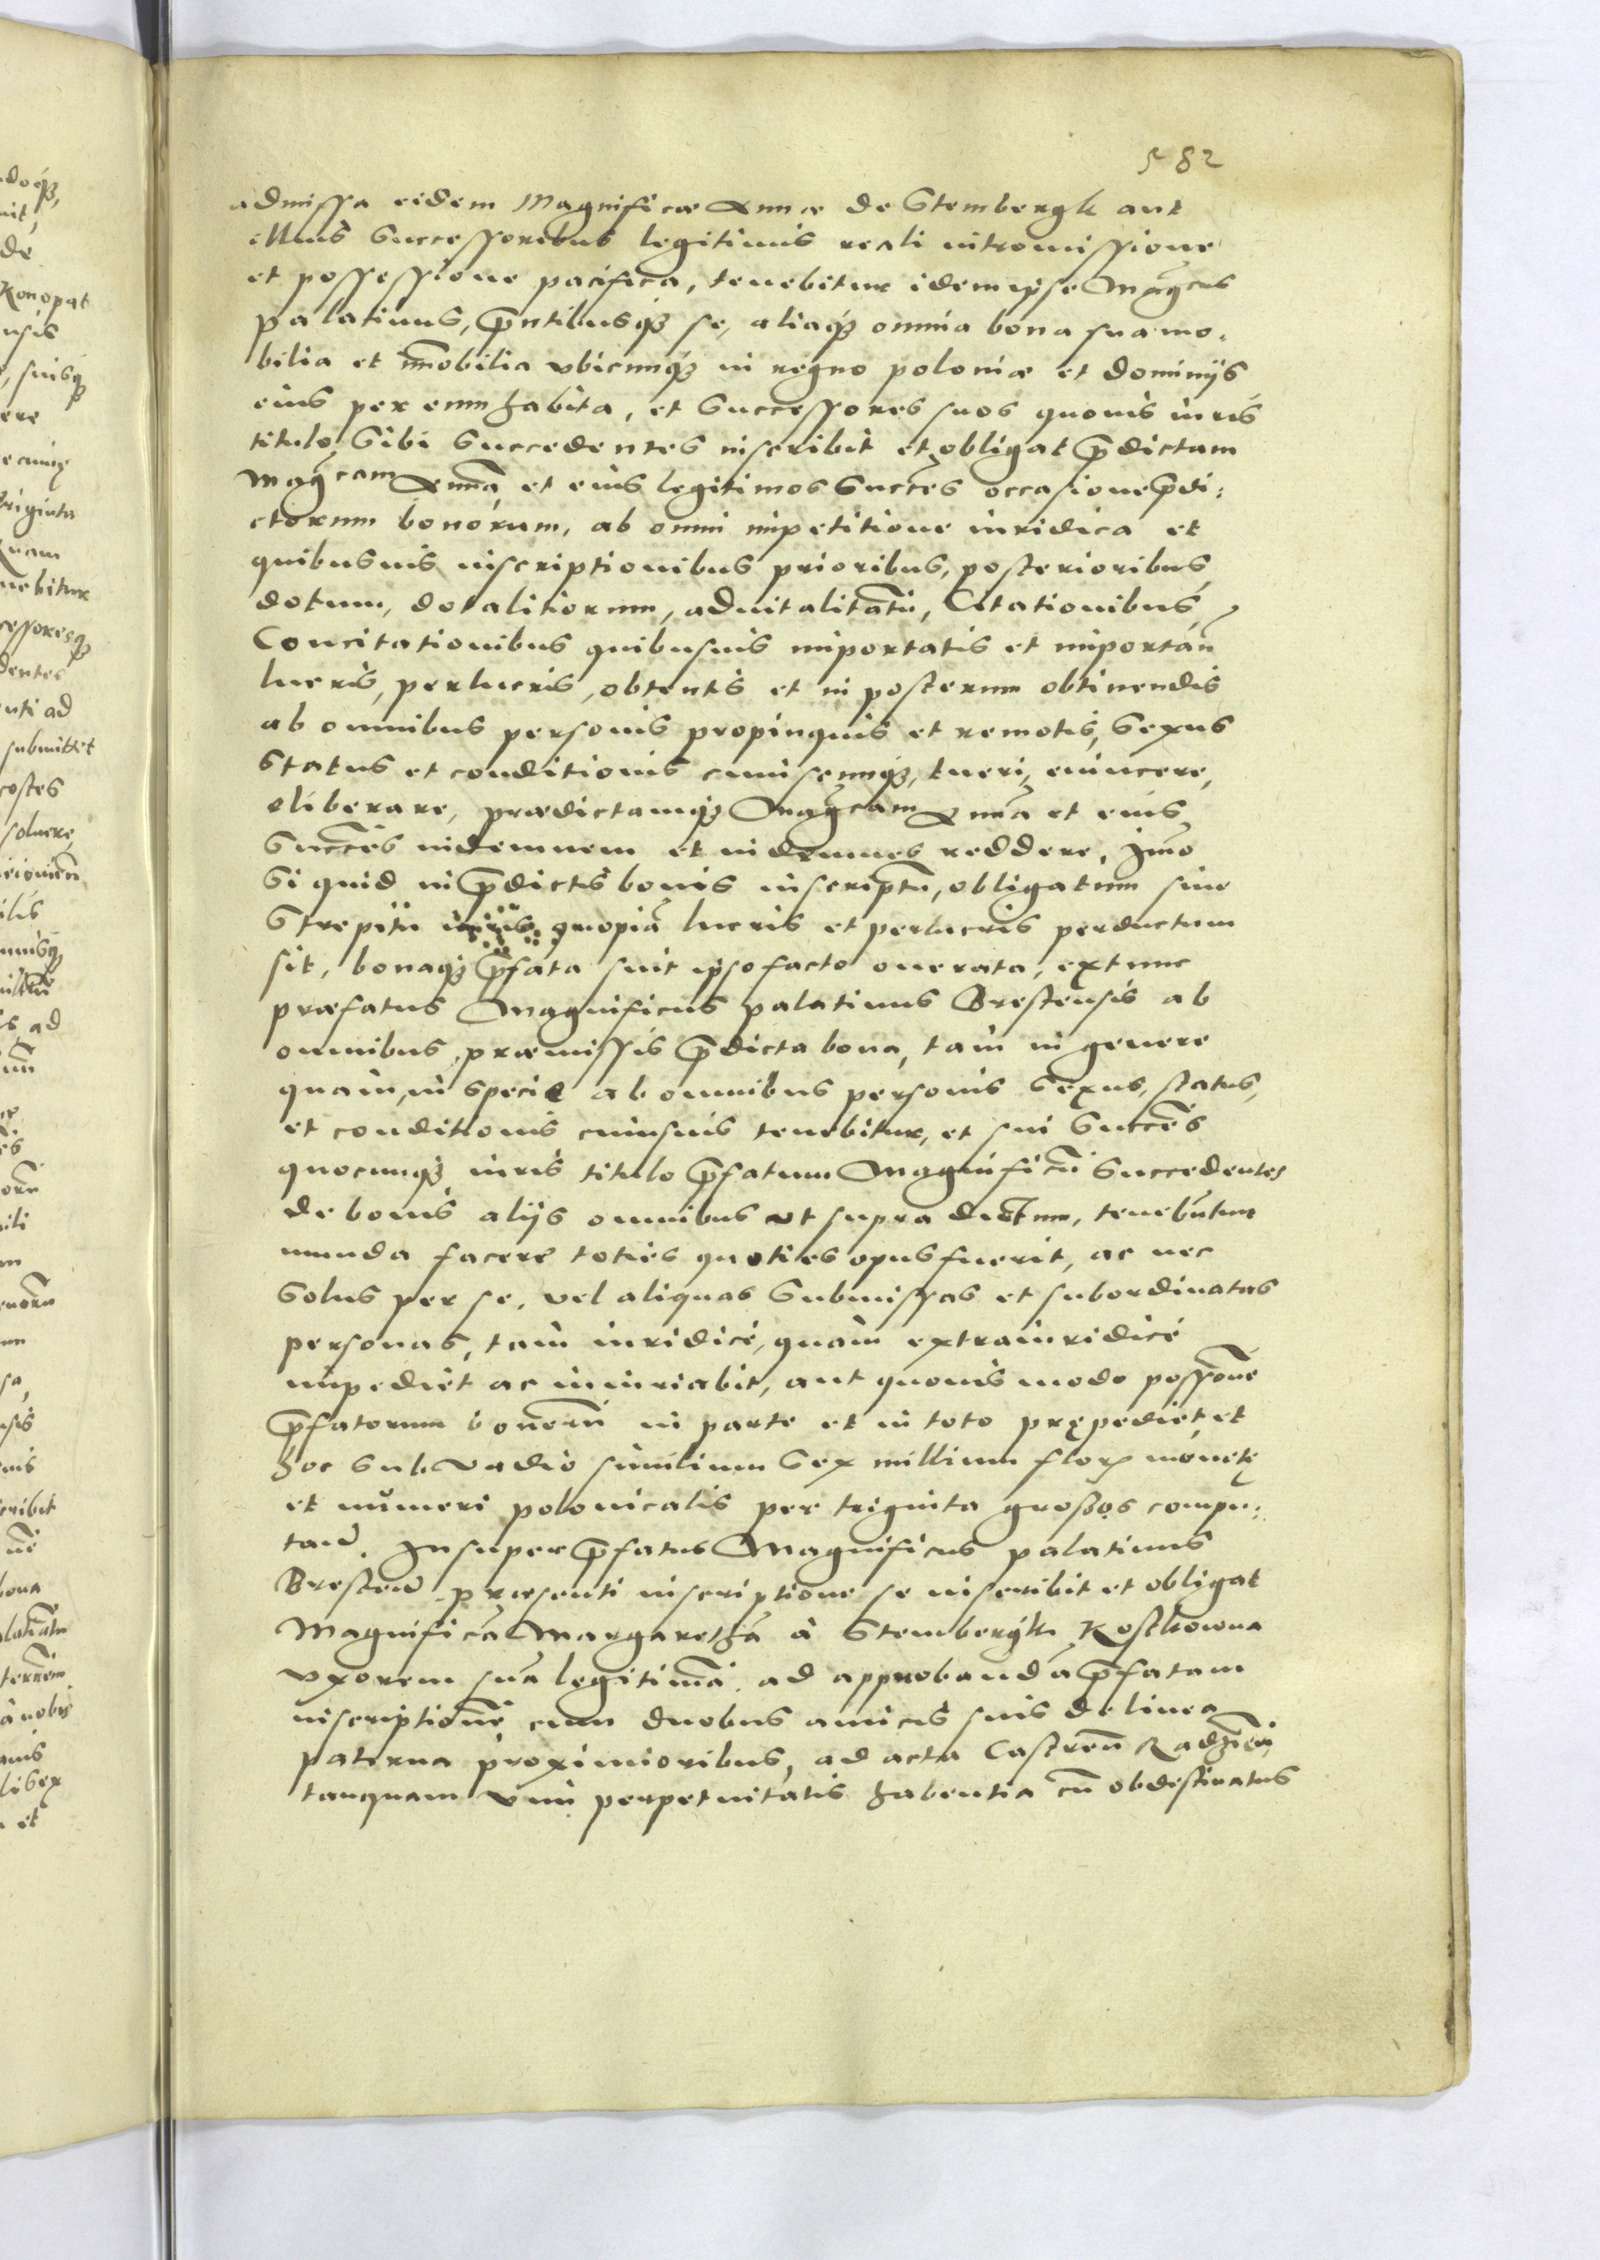 582
admissa eidem Magnificæ Annæ de Stembergk aut
illius Successoribus legitimis reali intromissione
et possessione pacifica, tenebitur idem ipse Magcus
palatinus, prntibusq3 se, aliaq3 omnia bona sua mo,
bilia et imobilia vbicunq3 in regno poloniæ et dominijs
eius per eum habita, et Successores suos quouis iuris
titulo Sibi Succedentes inscribit et obligat prdictam
Magcam Annā et eius legitimos Succēs occasione prdi:
ctorum bonorum, ab omni impetitione iuridica et
quibusuis inscriptionibus prioribus, posterioribus,
dotum, dotalitiorum, aduitalitatū, Citationibus,
Concitationibus quibusuis importatis et importan
lucris, perlucris, obtentis et in posterum obtinendis
ab omnibus personis propinquis et remotis, Sexus
Status et conditionis cuiuscunq3, tueri, euincere,
eliberare, prædictamq3 Magcam Annā et eius
Succēs indemnem et indemnes reddere, Imo
Si quid in prdictis bonis inscriptū, obligatum siue
Strepitu iuris quopiā lucris et perlucris perductum
sit, bonaq3 prfata sint ipso facto onerata, extunc
præfatus Magnificus palatinus Brestensis ab
omnibus præmissis prdicta bona, tam in genere
quam, in specie ab omnibus personis Sexus, status,
et conditionis cuiusuis tenebitur, et sui Succēs
quocunq3 iuris titulo prfatum Magnificū Succedentes
de bonis alijs omnibus vt supra dictum, tenebuntur
munda facere toties quoties opus fuerit, ac nec
Solus per se, vel aliquas Submissas et subordinatas
personas, tam iuridicè, quàm extraiuridicè
impediet ac iniuriabit, aut quouis modo possonē
prfatorum bonorū in parte et in toto prępediet, et
hoc Sub vadio similium Sex millium flor monetę
et numeri polonicalis per triginta grossos compu:
tan. Insuper prfatus Magnificus palatinus
Bresten præsenti inscriptione se inscribit et obligat
Magnificā Margarethā à Stembergk Kostkowna
vxorem suā legitimā ad approbandā prfatam
inscriptionē cum duobus amicis suis de linea
paterna proximioribus, ad acta Castren Radzieiē
tanquam vim perpetuitatis habentia cū obdestinatus